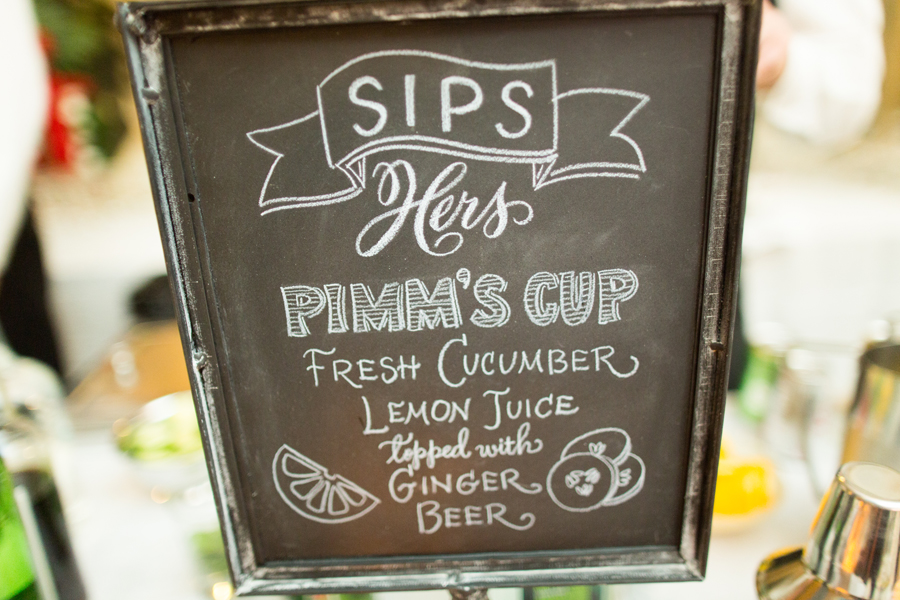 SIPS
Hers
PIMM'S CUP
FRESH CUCUMBER
LEMON JUICE
topped with
GINGER
BEER